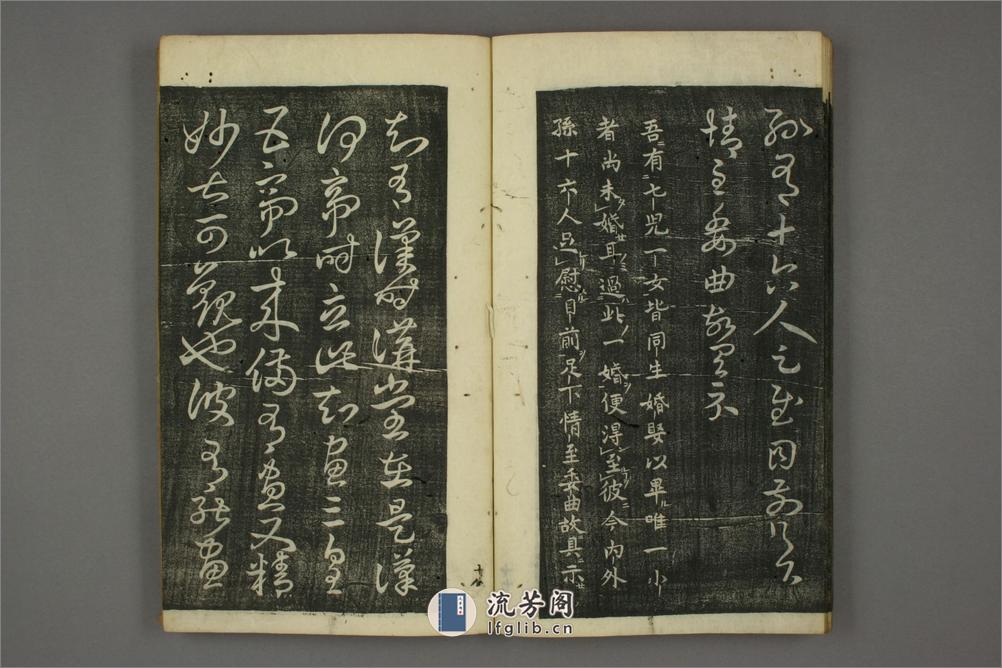 孫有十六人足慰目前足下
情至委曲故具示
吾有七兒一女皆同生婚娶以畢唯一小
者尚未婚耳過此一婚便得至彼今內外
孫十六人足慰目前足下情至委曲故具示
知有漢時講堂在是漢
何帝時立此知畫三皇
五帝以來備有畫又精
妙甚可觀也彼有能畫
流芳阁
lfglib.cn